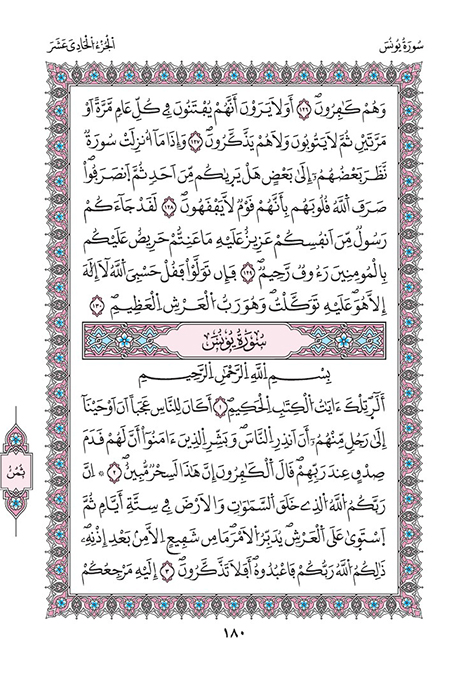 سُورَةُ يُونُسَ
الجُزْءُ الحَادِي عَشَرَ
وَهُمْ كَٰفِرُونَ ١٢٦ أَوَلَا يَرَوْنَ أَنَّهُمْ يُفْتَنُونَ فِي كُلِّ عَامٍ مَّرَّةً اَوْ
مَرَّتَيْنِ ثُمَّ لَا يَتُوبُونَ وَلَا هُمْ يَذَّكَّرُونَ ١٢٧ وَإِذَا مَا أُنزِلَتْ سُورَةٌ
نَّظَرَ بَعْضُهُمُ إِلَىٰ بَعْضٍ هَلْ يَرَىٰكُم مِّنَ اَحَدٍ ثُمَّ اَنصَرَفُواْ
صَرَفَ اَللَّهُ قُلُوبَهُم بِأَنَّهُمْ قَوْمٌ لَّا يَفْقَهُونَ ١٢٨ لَقَدْ جَآءَكُمْ
رَسُولٌ مِّنَ اَنفُسِكُمْ عَزِيزٌ عَلَيْهِ مَا عَنِتُّمْ حَرِيصٌ عَلَيْكُم
بِالْمُومِنِينَ رَءُوفٌ رَّحِيمٌ ١٢٩ فَإِن تَوَلَّوْاْ فَقُلْ حَسْبِيَ اَللَّهُ لَآ إِلَٰهَ
إِلَّا هُوَ عَلَيْهِ تَوَكَّلْتُ وَهُوَ رَبُّ اُلْعَرْشِ اِلْعَظِيمِ ١٣٠
سُورَةُ يُونُسَ
بِسْمِ اِللَّهِ اِلرَّحْمَٰنِ اِلرَّحِيمِ
أَلَٓر تِلْكَ ءَايَٰتُ اُلْكِتَٰبِ اِلْحَكِيمِ ١ أَكَانَ لِلنَّاسِ عَجَبًا اَنَ اَوْحَيْنَآ
إِلَىٰ رَجُلٍ مِّنْهُمُ أَنَ اَنذِرِ اِلنَّاسَ وَبَشِّرِ اِلذِينَ ءَامَنُوٓاْ أَنَّ لَهُمْ قَدَمَ
صِدْقٍ عِندَ رَبِّهِمْ قَالَ اَلْكَٰفِرُونَ إِنَّ هَٰذَا لَسِحْرٌ مُّبِينٌ ٢ اِنَّ
رَبَّكُمُ اُللَّهُ اُلذِي خَلَقَ اَلسَّمَٰوَٰتِ وَالَارْضَ فِي سِتَّةِ أَيَّامٍ ثُمَّ
اَسْتَوَىٰ عَلَى اَلْعَرْشِ يُدَبِّرُ اُلَامْرَ مَا مِن شَفِيعٍ اِلَّا مِنۢ بَعْدِ إِذْنِهِۦ
ذَٰلِكُمُ اُللَّهُ رَبُّكُمْ فَاعْبُدُوهُ أَفَلَا تَذَّكَّرُونَ ٣ إِلَيْهِ مَرْجِعُكُمْ
ثُمُنُ
١٨٠